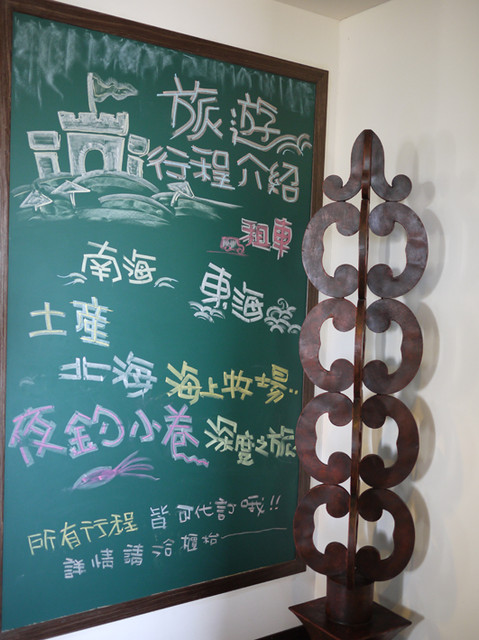 旅遊
行程介紹
租車
南海
東海
土產
北海
海上牧場!!
夜釣小卷
深度之旅
所有行程 皆可代訂哦!!
詳情請洽櫃枱